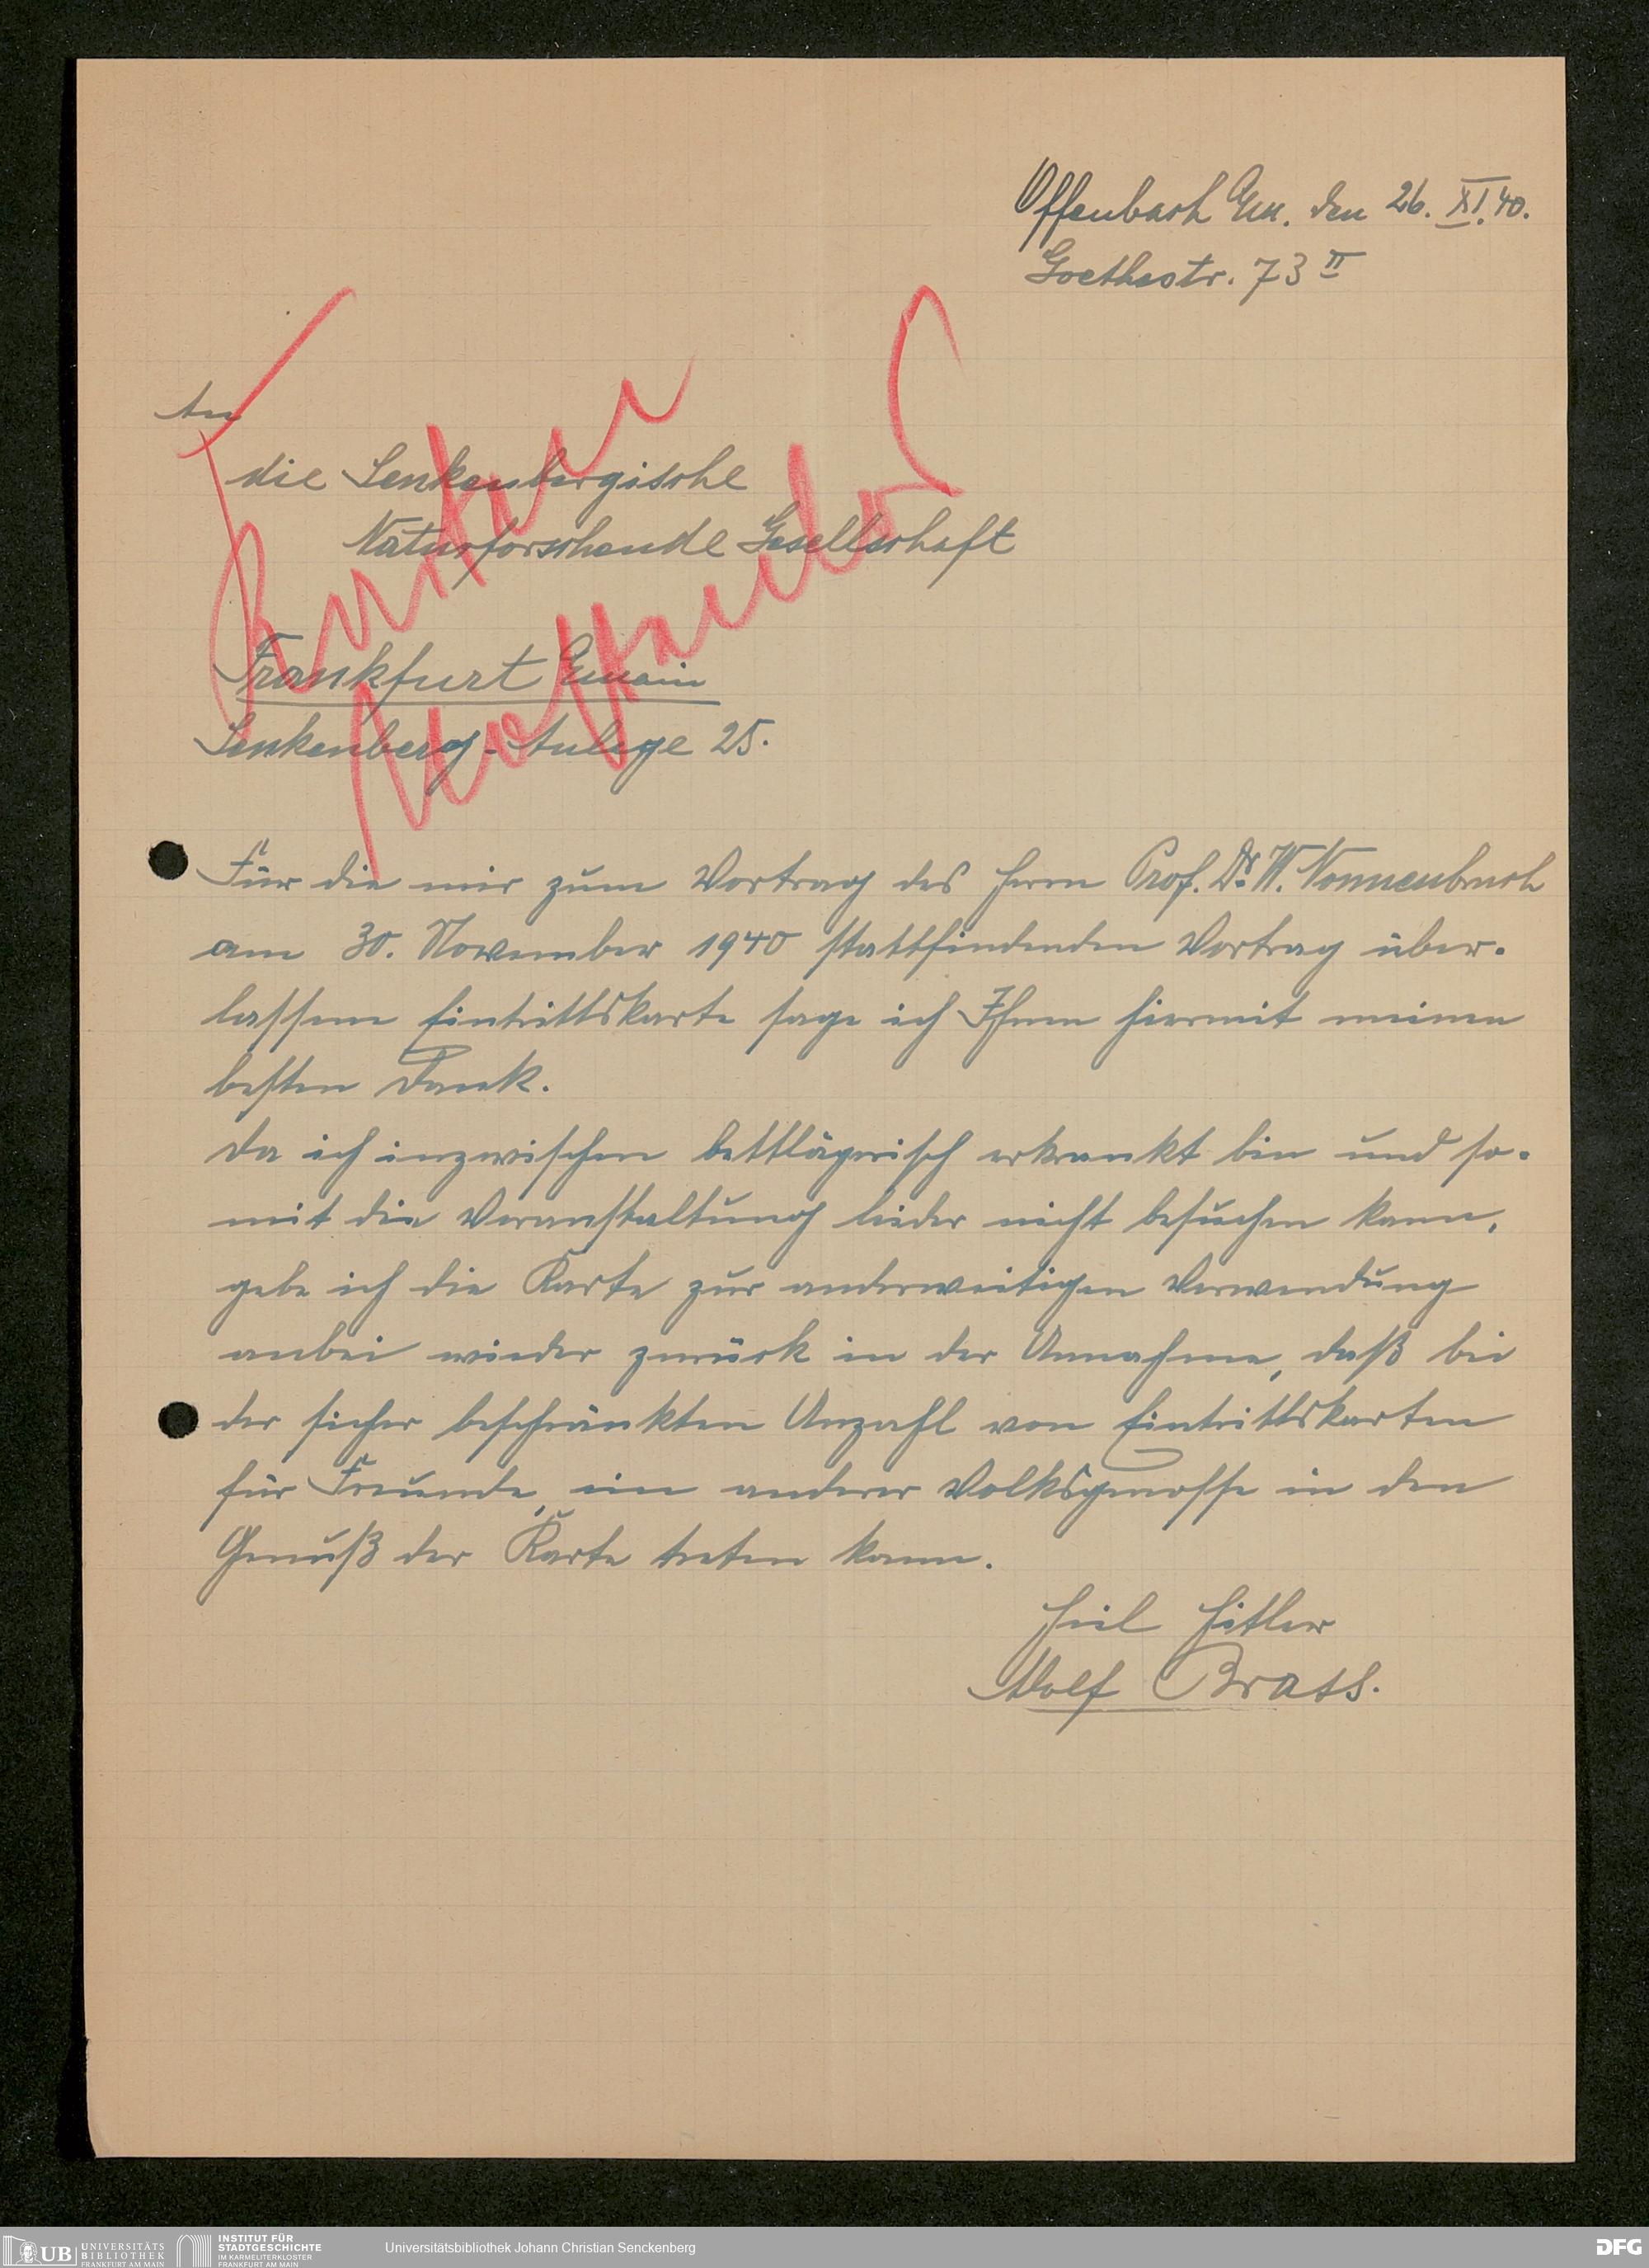 Offenbach a/M. den 26. XI. 40.
Goethestr. 73 II
An
die Senkenbergische
Naturforschende Gesellschaft
Frankfurt a/Main
Senkenberg-Anlage 25.
Für die mir zum Vortrag des Herrn Prof. Dr. W. Nonnenbruch
am 30. November 1940 stattfindenden Vortrag über-
lassene Eintrittskarte sage ich Ihnen hiermit meinen
besten Dank.
Da ich inzwischen bettlägerisch erkrankt bin und so-
mit die Veranstaltung leider nicht besuchen kann,
gebe ich die Karte zur anderweitigen Verwendung
anbei wieder zurück in der Annahme, daß bei
der sicher beschränkten Anzahl von Eintrittskarten
für Freunde, ein anderer Volksgenosse in den
Genuß der Karte treten kann.
Heil Hitler
Adolf Brass.
UB UNIVERSITÄTS
BIBLIOTHEK
FRANKFURT AM MAIN
INSTITUT FÜR
STADTGESCHICHTE
IM KARMELITERKLOSTER
FRANKFURT AM MAIN
Universitätsbibliothek Johann Christian Senckenberg
DFG